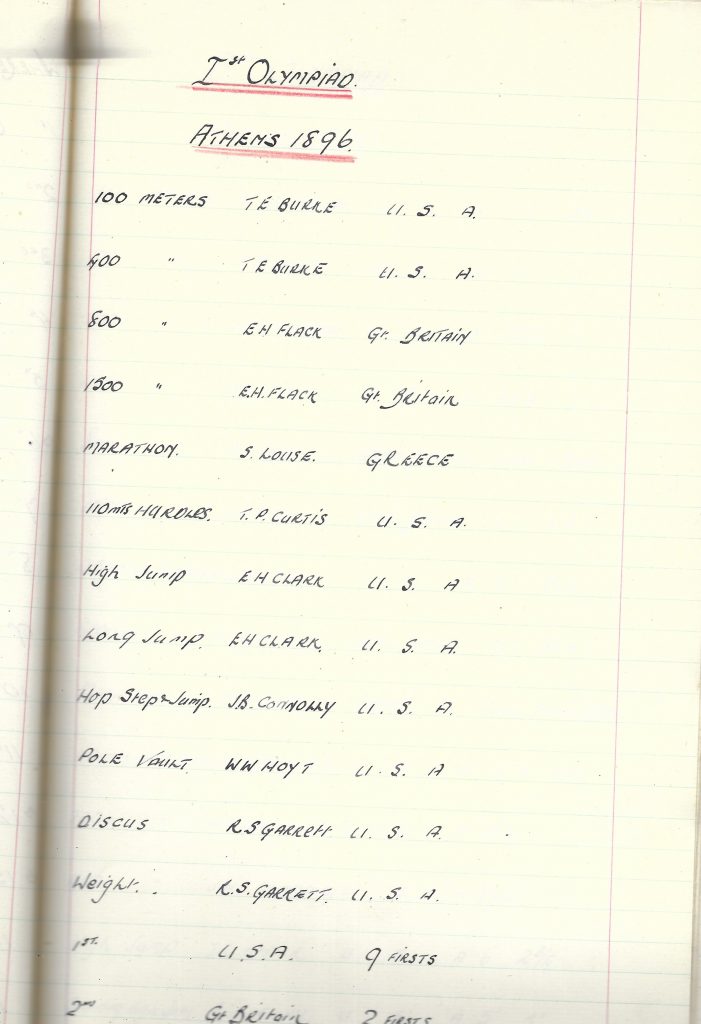 Ist OLYMPIAD.
ATHENS 1896.
100 METERS T E BURKE U. S. A.
400 " T E BURKE U. S. A.
800 " E H FLACK Gt. BRITAIN
1500 " E.H. FLACK Gt. Britain
MARATHON. S. LOUSE. GREECE
110mts HURDLES. T. P. CURTIS U. S. A.
High Jump E H CLARK U. S. A
Long Jump. E H CLARK. U. S. A.
Hop Step & Jump. J.B. CONNOLLY U. S. A.
POLE VAULT W W HOYT U. S. A
DISCUS R S GARRETT U. S. A.
Weight. R. S. GARRETT. U. S. A.
1ST. U. S. A. 9 FIRSTS
2nd Gt Britain 2 FIRSTS